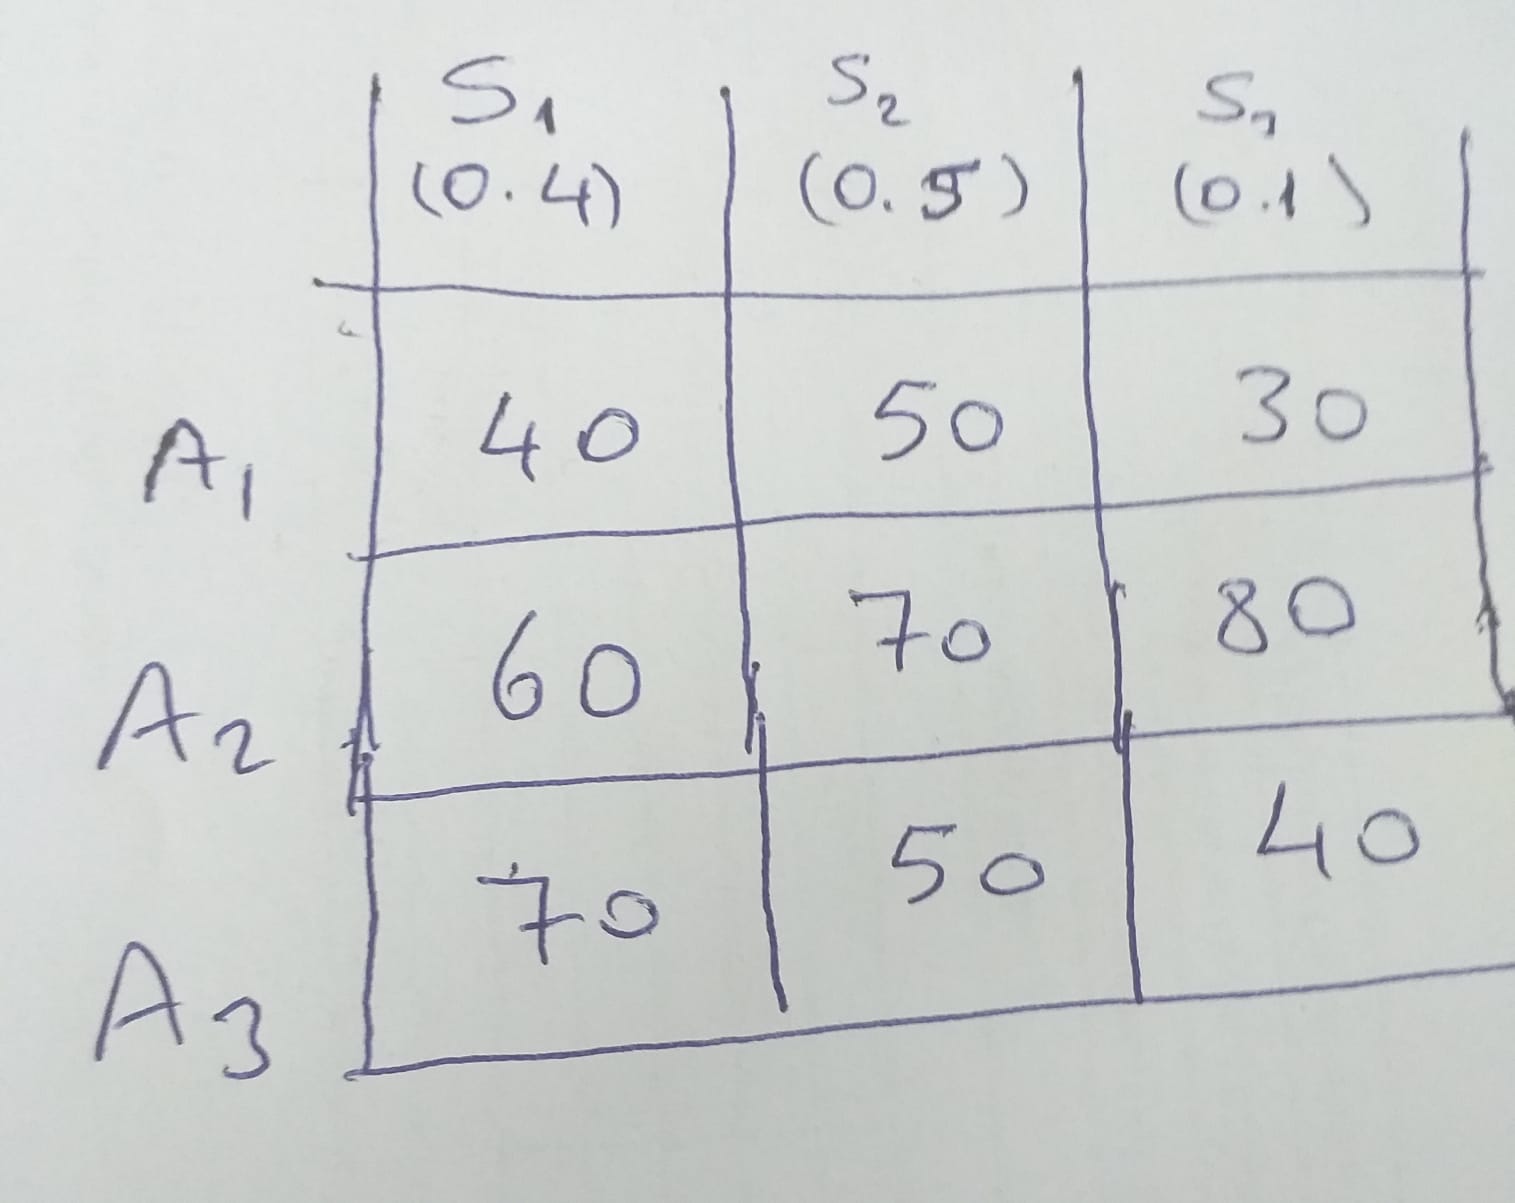 S₁ S₂ S₃
(0.4) (0.5) (0.1)
A₁ 40 50 30
A₂ 60 70 80
A₃ 70 50 40